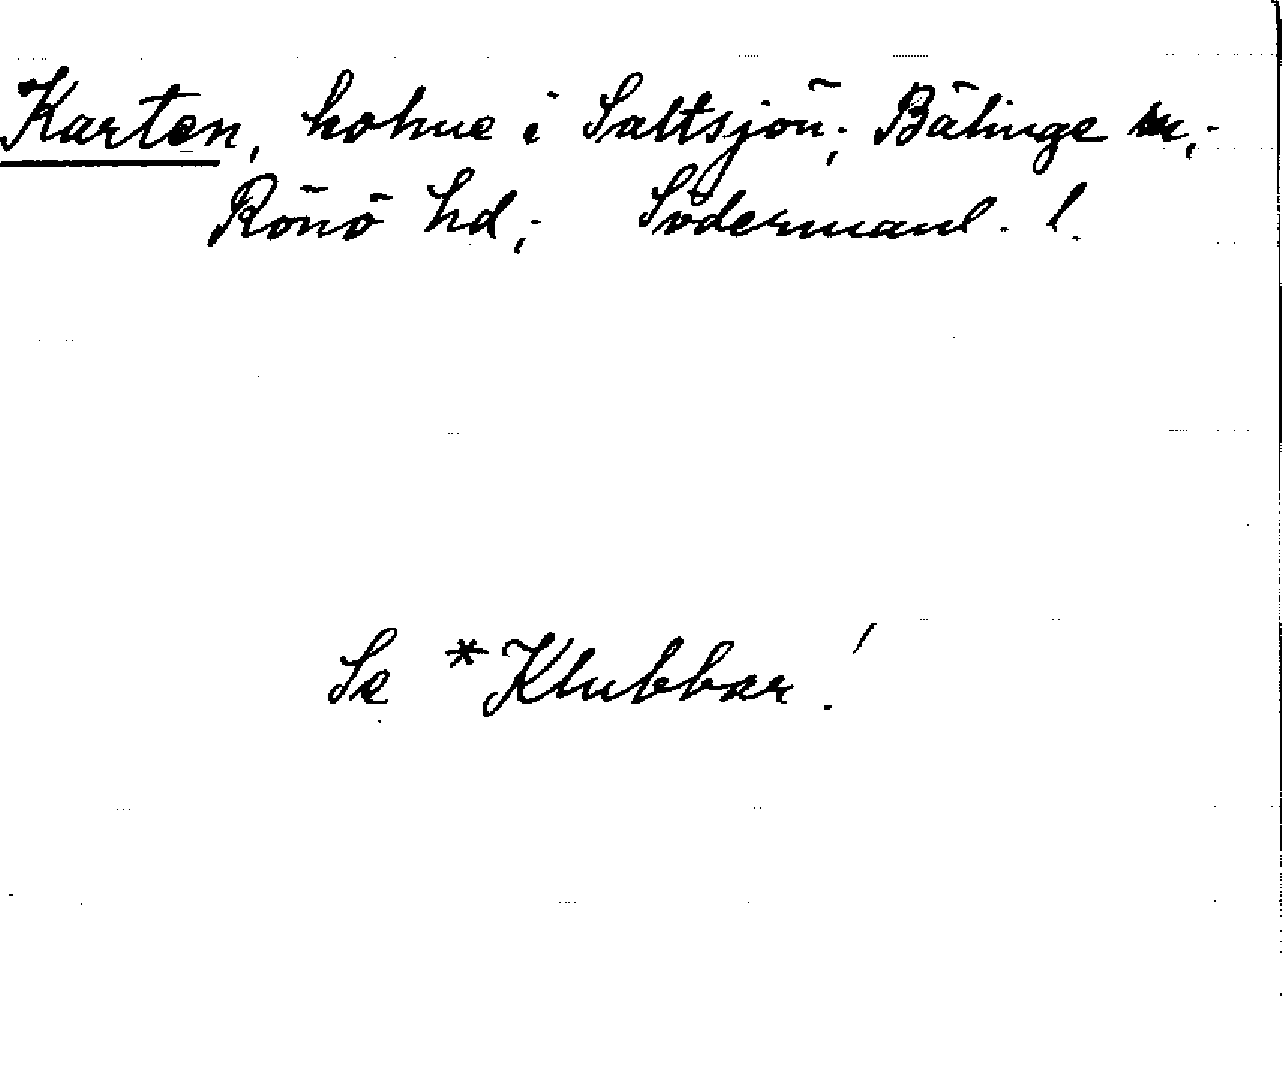 Karten, holme i Saltsjön; Bälinge sn,-
Rönö hd,- Södermanl. l.
Se *Klubbar!